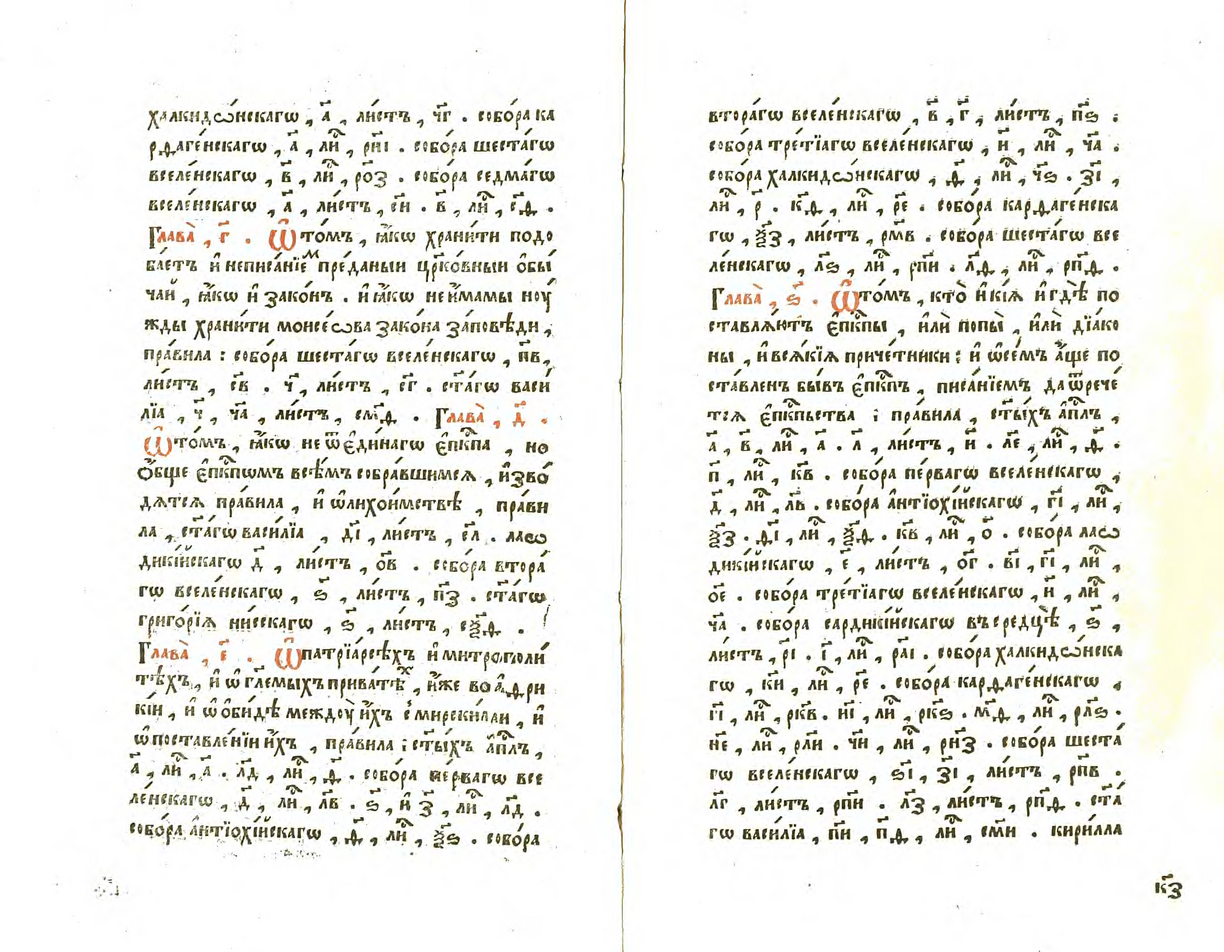 халкидѡ́нскагѡ , а҃ , ли́стъ , ч҃г . собо́ра ка
рѳаге́нскагѡ , а҃ , ли , рн҃і . собо́ра шеста́гѡ
вселе́нскагѡ , в҃ , ли , ро҃з . собо́ра седма́гѡ
вселе́нскагѡ , а҃ , ли́стъ , с҃и . в҃ , ли , с҃ѳ .
Глава̀ , г҃ . Ѡ то́мъ , ꙗ҆́кѡ храни́ти подо
ба́етъ и҆ неписа́нїемъ пре́даныи цр҃ко́вныи ѻ҆бы́
чаи , ꙗ҆́кѡ и҆ зако́нъ . и҆ ꙗ҆́кѡ не и҆́мамы ноу́
жды храни́ти моисе́ѡва зако́на за́повѣди ,
пра́вила : собо́ра шеста́гѡ вселе́нскагѡ , п҃в ,
ли́стъ , с҃в . ч҃ , ли́стъ , с҃г . ст҃а́гѡ васи́
лїа , ч҃ , ч҃а , ли́стъ , см҃ѳ . Глава̀ , д҃ .
Ѡ то́мъ , ꙗ҆́кѡ не ѿ є҆ди́нагѡ є҆пⷭ҇кпа , но
ѻ҆́бще є҆пⷭ҇кпѡмъ всѣ́мъ собра́вшимсѧ , и҆зво́
дѧтсѧ пра́вила , и҆ ѡ҆ лихои́мствѣ , пра́ви
ла , ст҃а́гѡ васи́лїа , д҃і , ли́стъ , с҃л . лаѡ
диќїйскагѡ д҃ , ли́стъ , о҃в . собо́ра втора́
гѡ вселе́нскагѡ , ѕ҃ , ли́стъ , п҃з . ст҃а́гѡ
григо́рїѧ ни́сскагѡ , ѕ҃ , ли́стъ , сѯ҃ѳ .
Глава̀ , є҃ . Ѡ патрїа́рсѣхъ и҆ митрополи́
тѣхъ , и҆ ѡ҆ гл҃емыхъ прива́тѣхъ , и҆́же во а҆фри
ќїи , и҆ ѡ҆ ѻ҆би́дѣ междоу̀ и҆́хъ с мирскими , и҆
ѡ҆ поставле́нїи и҆́хъ , пра́вила : ст҃ы́хъ а҆пⷭ҇лъ ,
а҃ , ли , а҃ . л҃д , ли , ѳ҃ . собо́ра пе́рвагѡ все
ле́нскагѡ , д҃ , ли , л҃в . ѕ҃ , и҆ з҃ , ли , л҃д .
собо́ра а҆нтїохі́йскагѡ , ѳ҃ , ли , ѯ҃ѕ . собо́ра
втора́гѡ вселе́нскагѡ , в҃ , г҃ , ли́стъ , п҃ѕ .
собо́ра тре́тїагѡ вселе́нскагѡ , и҃ , ли , ч҃а .
собо́ра халкидѡ́нскагѡ , ѳ҃ , ли , ч҃ѕ . з҃і ,
ли , р҃ . к҃ѳ , ли , р҃є . собо́ра карѳаге́нска
гѡ , ѯ҃з , ли́стъ , рм҃в . собо́ра шеста́гѡ все
ле́нскагѡ , л҃ѕ , ли , рп҃и . л҃ѳ , ли , рп҃ѳ .
Глава̀ , ѕ҃ . Ѡ то́мъ , кто̀ и҆ кі́ѧ и҆ гдѣ̀ по
ставлѧ́ютъ є҆пⷭ҇кпы , и҆лѝ попы̀ , и҆лѝ дїа́ко
ны , и҆ всѧ́кїѧ приче́тники : и҆ ѡ҆ се́мъ а҆́ще по
ста́вленъ бы́въ є҆пⷭ҇кпъ , писа́нїемъ да ѿрече́
тсѧ є҆пⷭ҇кпьства : пра́вила , ст҃ы́хъ а҆пⷭ҇лъ ,
а҃ , в҃ , ли , а҃ . л҃ , ли́стъ , и҃ . л҃є , ли , ѳ҃ .
п҃ , ли , к҃в . собо́ра пе́рвагѡ вселе́нскагѡ ,
д҃ , ли , л҃в . собо́ра а҆нтїохі́йскагѡ , г҃і , ли ,
ѯ҃з . ѳ҃і , ли , ѯ҃ѳ . к҃в , ли , о҃ . собо́ра лаѡ
диќїйскагѡ , є҃ , ли́стъ , о҃г . в҃і , г҃і , ли ,
о҃є . собо́ра тре́тїагѡ вселе́нскагѡ , и҃ , ли ,
ч҃а . собо́ра сардикі́йскагѡ въ средцѣ̀ , ѕ҃ ,
ли́стъ , р҃і . г҃ , ли , ра҃і . собо́ра халкидѡ́нска
гѡ , к҃и , ли , р҃є . собо́ра карѳаге́нскагѡ ,
г҃і , ли , рк҃в . н҃і , ли , рк҃ѕ . м҃ѳ , ли , рл҃ѕ .
н҃є , ли , рл҃и . ч҃и , ли , рн҃з . собо́ра шеста́
гѡ вселе́нскагѡ , ѕ҃і , з҃і , ли́стъ , рп҃в .
л҃г , ли́стъ , рп҃и . л҃з , ли́стъ , рп҃ѳ . ст҃а́
гѡ васи́лїа , п҃и , п҃ѳ , ли , см҃и . кири́лла
к҃з